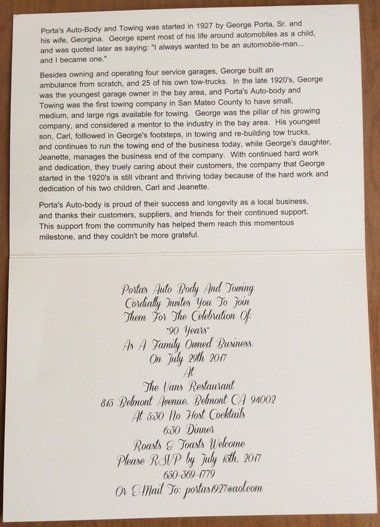 Porta's Auto-Body and Towing was started in 1927 by George Porta, Sr. and
his wife, Georgina.  George spent most of his life around automobiles as a child,
and was quoted later as saying: "I always wanted to be an automobile-man...
and I became one."
Besides owning and operating four service garages, George built an
ambulance from scratch, and 25 of his own tow-trucks.  In the late 1920's, George
was the youngest garage owner in the bay area, and Porta's Auto-body and
Towing was the first towing company in San Mateo County to have small,
medium, and large rigs available for towing.  George was the pillar of his growing
company, and considered a mentor to the industry in the bay area.  His youngest
son, Carl, folllowed in George's footsteps, in towing and re-building tow trucks,
and continues to run the towing end of the business today, while George's daughter,
Jeanette, manages the business end of the company.  With continued hard work
and dedication, they truely caring about their customers, the company that George
started in the 1920's is still vibrant and thriving today because of the hard work and
dedication of his two children, Carl and Jeanette.
Porta's Auto-body is proud of their success and longevity as a local business,
and thanks their customers, suppliers, and friends for their continued support.
This support from the community has helped them reach this momentous
milestone, and they couldn't be more grateful.
Portas Auto Body And Towing
Cordially Invites You To Join
Them For The Celebration Of:
"90 Years"
As A Family Owned Business.
On July 29th 2017
At
The Vans Restaurant
815 Belmont Avenue, Belmont CA 94002
At 5:30 No Host Cocktails
6:30 Dinner
Roasts & Toasts Welcome
Please RSVP by July 15th, 2017
650-369-1779
Or E-Mail To: portas1927@aol.com